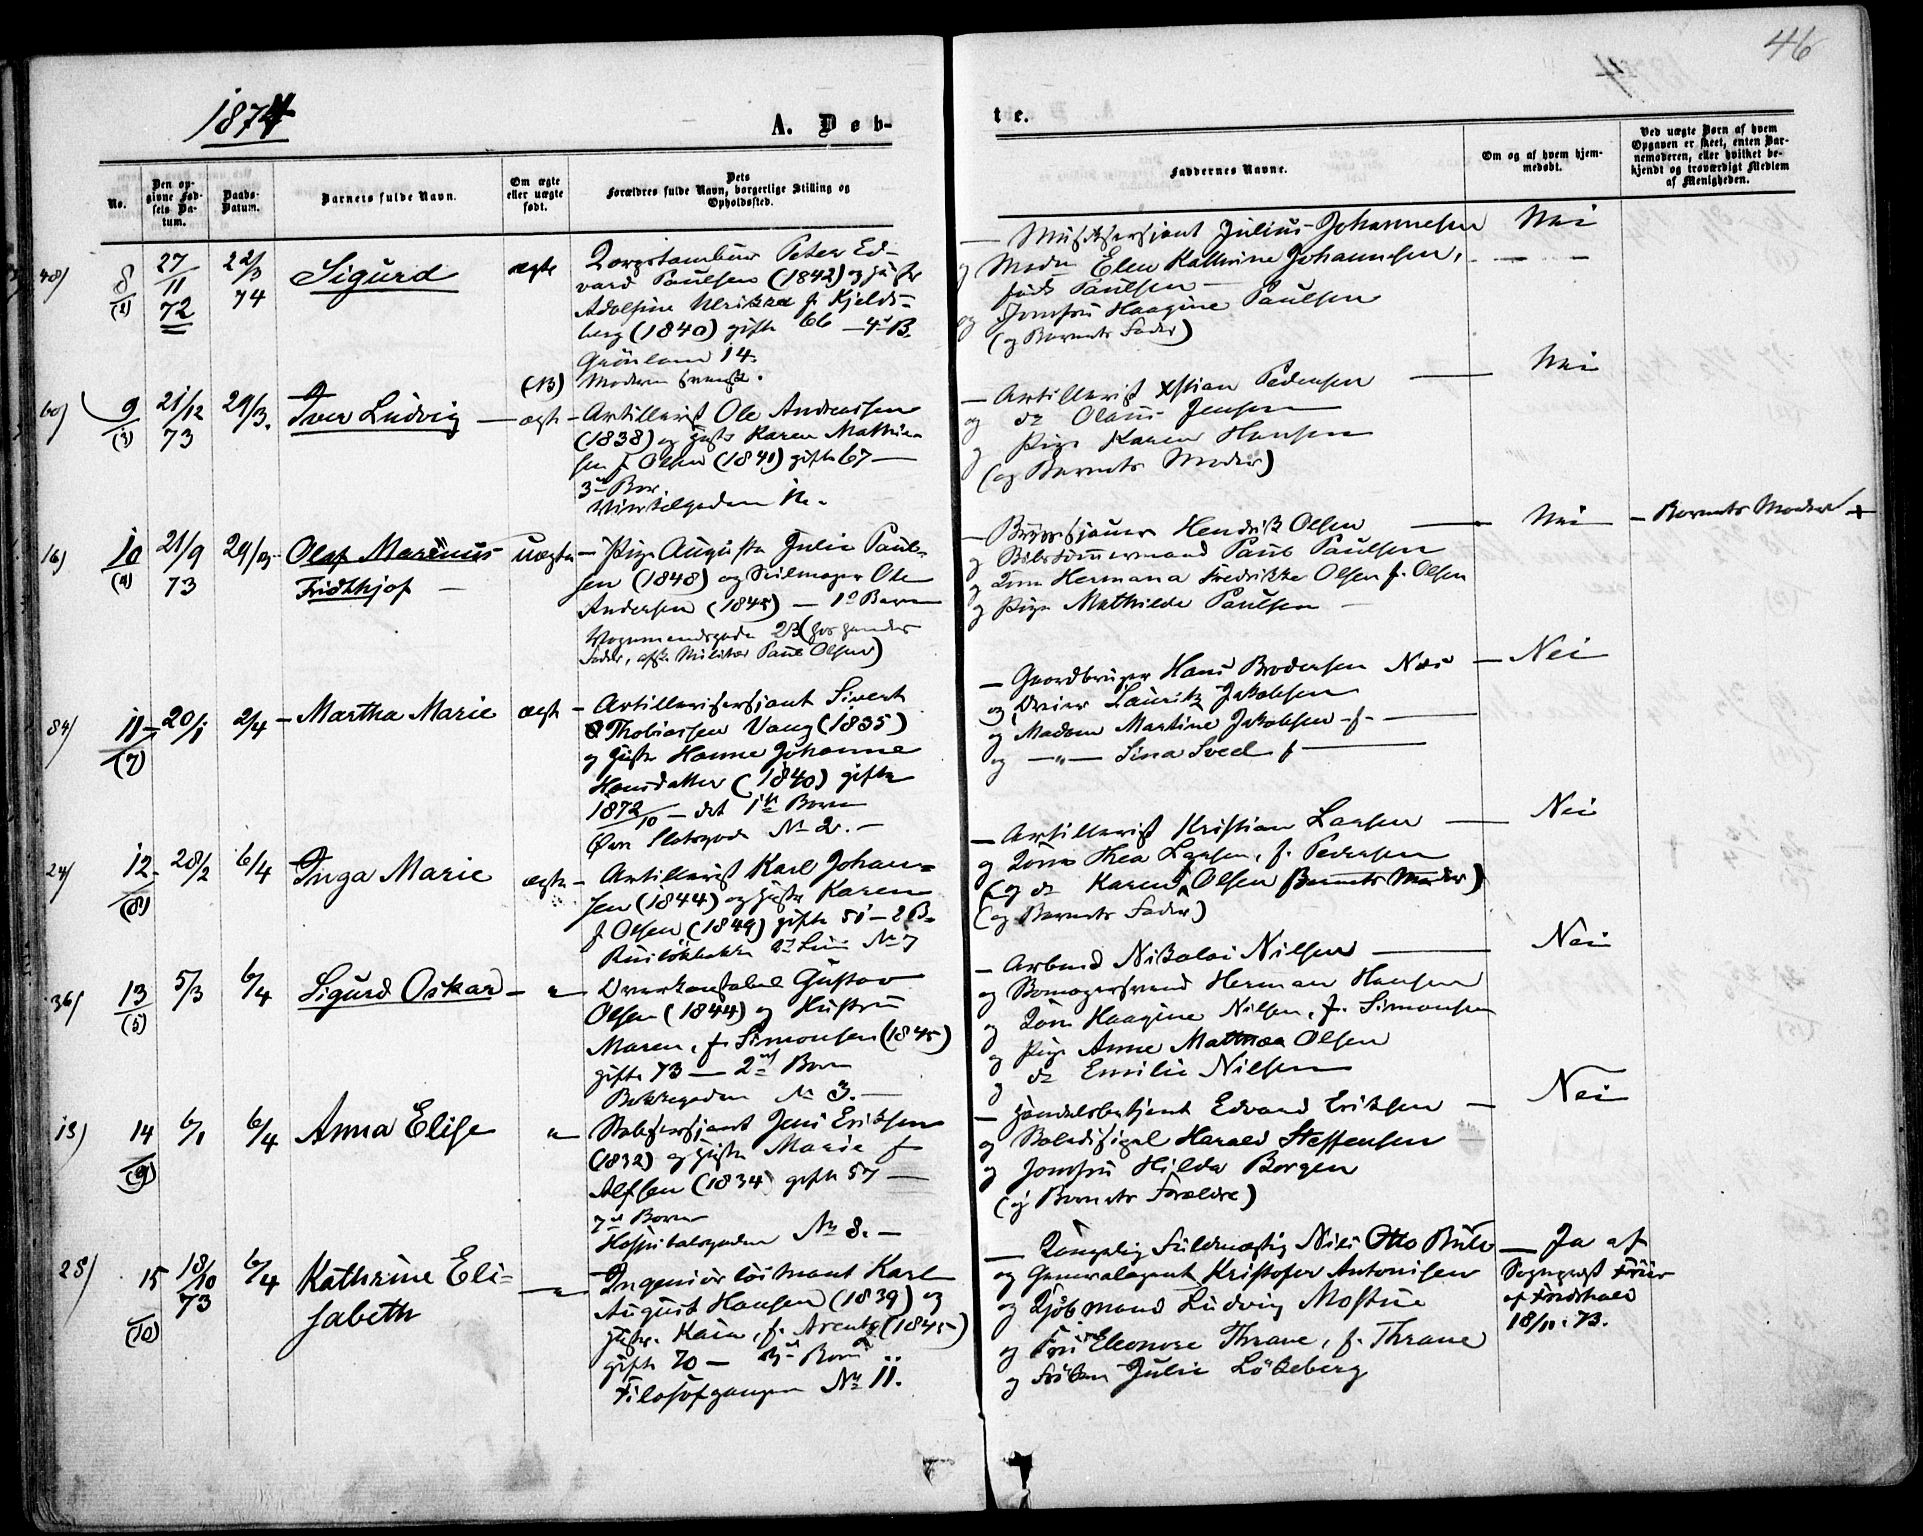 46
1874
A. Døb-
te.
No.
Den op-
givne Fød-
sels Da-
tum.
Daabs-
Datum.
Barnets fulde Navn.
Om ægte
eller uægte
født.
Dets
Forældres fulde Navn, borgerlige Stilling og
Opholdssted.
Faddernes Navne.
Om og af hvem hjem-
medøbt.
Ved uægte Børn af hvem
Opgaven er skeet, enten Bar-
nemoderen, eller hvilket be-
kjendt og troværdigt Medlem
af Menigheden.
48)
8
(2)
27/11
72
22/3
74
Sigurd
ægte
Korpstambur Peter Ed-
vard Paulsen (1842) og Hustr
Adolfine Ulrikke f. Kjelds-
berg (1840) gifte 66 — 4de B.
Grönland 14.
Moderen svensk.
— Musiksersjant Julius Johannesen
og Madm Elen Kathrine Johannesen,
født Paulsen —
og Jomfru Haagine Paulsen
(og Barnets Fader)
Nei
60)
9
(3)
21/12
73
29/3.
Iver Ludvig
(B)
— ægte
— Artillerist Ole Andreassen
(1838) og Hustr Karen Mathie-
sen f. Olsen (1840) gifte 67 —
3die Barn
Vinkelgaden 12.
— Artillerist Xstian Pedersen
og do Olaus Jensen
og Pige Karen Hansen
(og Barnets Moder)
Nei
16)
10
(4)
21/9
73
29/3
Olaf Marinus
Fridthjof —
Uægte
— Pige Augusta Julie Paul-
sen (1848) og Seilmager Ole
Andersen (1845) — 1ste Barn
Vognmandsgade 23 (hos hendes
Fader, afsk. Militær Paul Olsen)
— Bryssesjauer Hendrik Olsen
og Bilstömmermand Paul Paulsen
og Kone Hermana Fredrikke Olsen f. Olsen
og Pige Mathilde Paulsen —
Nei
— Barnets Moder +
84)
11
(7)
20/1
2/4
— Martha Marie
ægte
— Artillerisersjant Sivert
Thobiassen Vang (1835)
og Hustr Hanne Johanne
Hansdatter (1840) gifte
1872/10 — det 1ste Barn
Övre Slotsgade No 2. —
— Gaardbruger Hans Brodersen Næs
og Dreier Lauritz Jakobsen
og Madam Martine Jakobsen f.
og —"— Sina Sved f
— Nei
24)
12
(8)
28/2
6/4
Inga Marie
ægte
— Artillerist Karl Johan-
sen (1844) og Hustr Karen
f. Olsen (1849) gifte 51 — 2 B.
Ruslökbakken 2den Linie No 7
— Artillerist Kristian Larsen
og Kone Thea Larsen, f. Pedersen
(og do Karen Olsen Barnets Moder)
(og Barnets Fader)
Nei
36)
13
(5)
5/3
6/4
Sigurd Oskar
— " —
Overkonstabel Gustav
Olsen (1844) og Hustru
Maren, f. Simonsen (1845)
gifte 73 — 2det Barn
Bakkegaden No 3. —
— Arbmd Nikolai Nilsen
og Bomagersvend Herman Hansen
og Kone Haagine Nilsen, f. Simonsen
og Pige Anne Mathea Olsen
og do Emilie Nilsen
Nei
13)
14
(9)
6/1
6/4
Anna Elise
"
Stabssersjant Jens Eriksen
(1832) og Hustr Marie f
Alfsen (1834) gifte 57 —
7de Barn
Hospitalsgaden No 8. —
— Handelsbetjent Edvard Eriksen
og Boledisigel Harald Steffensen
og Jomfru Hilda Borgen
(og Barnets Forældre)
Nei
28)
15
(10)
18/10
73
6/4
Kathrine Eli-
sabeth
— " —
Ingeniörlöitnant Karl
August Hansen (1839) og
Hustr. Kaia, f. Arentz (1845)
gifte 70 — Barn
Filosofgangen No 11.
— Kongelig Fuldmægtig Nils Otto Bull
og Generalagent Kristofer Antonisen
og Kjöbmand Ludvig Mostue
og Fru Eleonore Thrane, f. Thrane
og Fröken Julie Lökeberg
— Ja af
Sognprest Friis
af Fredshald
18/11. 73.